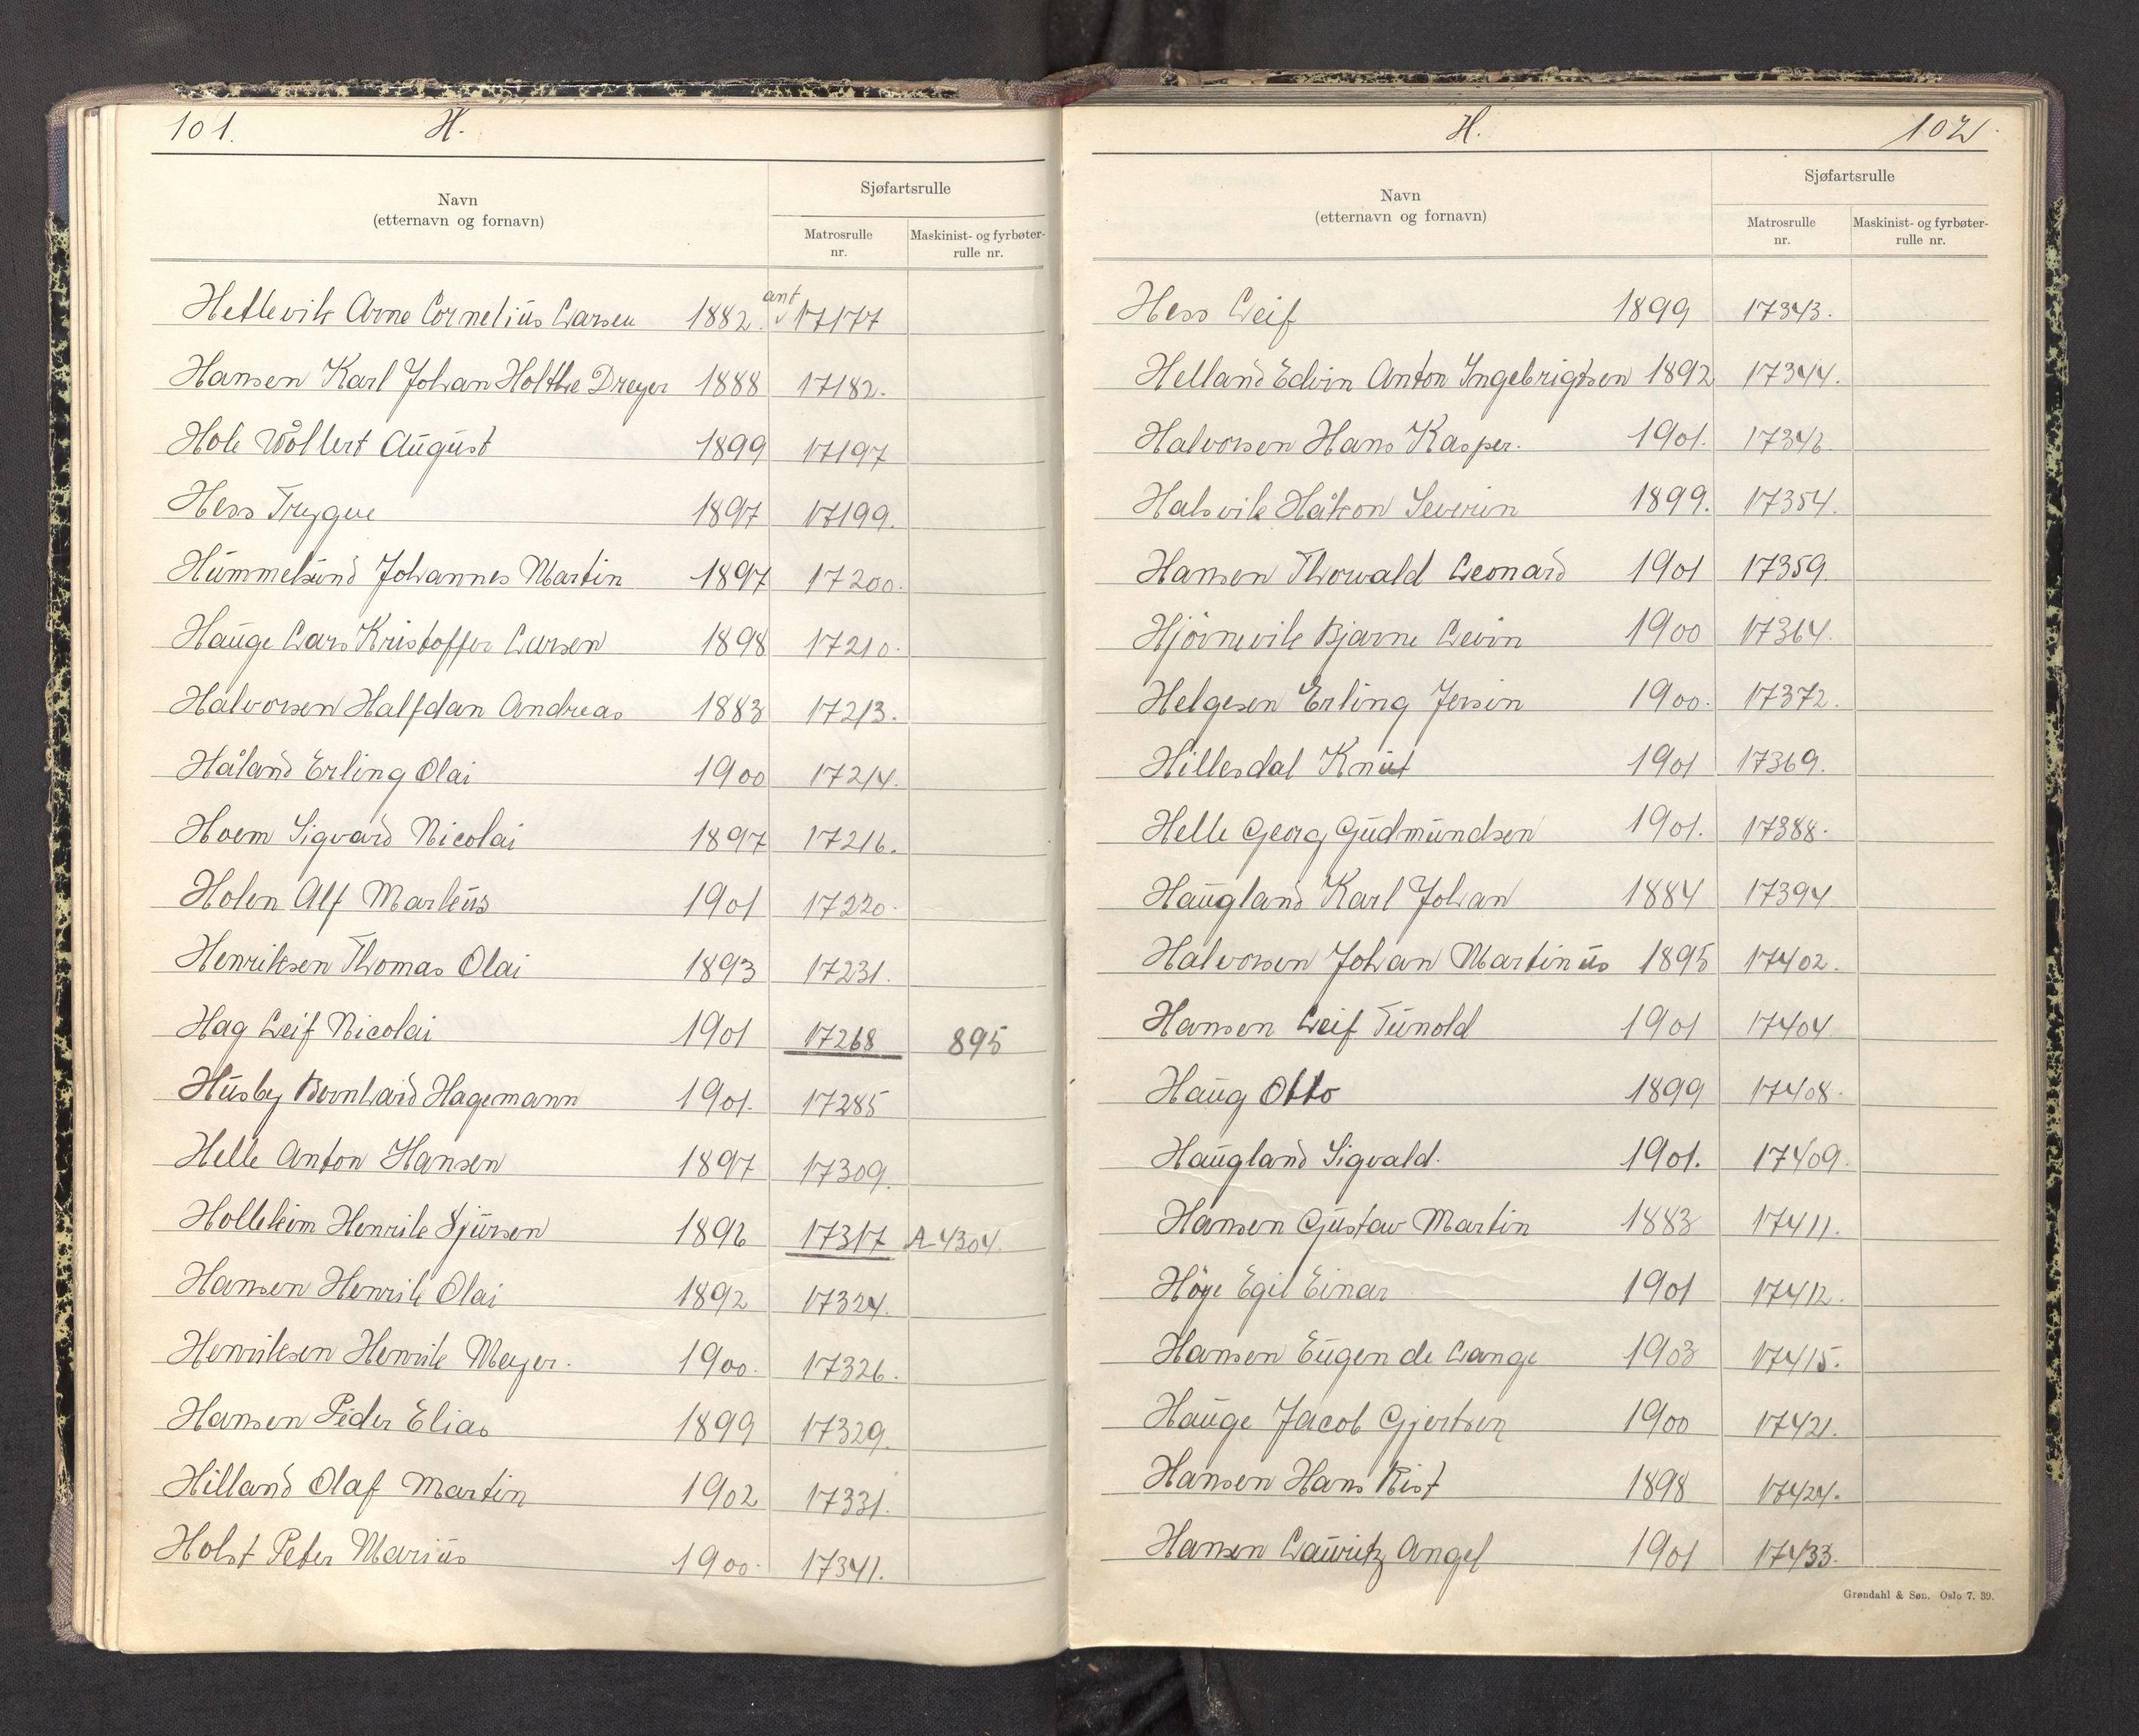 101. H.
Navn
(etternavn og fornavn)
Sjøfartsrulle
Matrosrulle
nr.
Maskinist- og fyrbøter-
rulle nr.
Hetlevik Arne Cornelius Larsen 1882. ant v 17177
Hansen Karl Johan Holthe Dreyer 1888 17182.
Hole Wollert August 1899 17197
Hess Trygve 1897 17199.
Hummelsund Johannes Martin 1897 17200.
Hauge Lars Kristoffer Larsen 1898 17210.
Halvorsen Halfdan Andreas 1883 17213.
Håland Erling Olai 1900 17214.
Hoem Sigvard Nicolai 1897 17216.
Holen Alf Markus 1901 17220.
Henriksen Thomas Olai 1893 17231.
Hag Leif Nicolai 1901 17268 895
Husby Bernhard Hagemann 1901. 17285
Helle Anton Hansen 1897 17309.
Hollekim Henrik Sjursen 1896 17317 A-4304.
Hansen Henrik Olai 1892 17324.
Henriksen Henrik Meyer. 1900. 17326.
Hansen Peder Elias 1899 17329.
Hilland Olaf Martin 1902 17331.
Holst Peter Marius 1900. 17341.
H. 102.
Navn
(etternavn og fornavn)
Sjøfartsrulle
Matrosrulle
nr.
Maskinist- og fyrbøter-
rulle nr.
Hess Leif 1899 17343.
Helland Edvin Anton Ingebrigtsen 1892 17344.
Halvorsen Hans Kasper. 1901. 17346.
Halsvik Håkon Severin 1899. 17354.
Hansen Thorvald Leonard 1901 17359.
Hjörnevik Bjarne Levin 1900 17364.
Helgesen Erling Jersin 1900. 17372.
Hillesdal Knut 1901 17369.
Helle Georg Gudmundsen 1901. 17388.
Haugland Karl Johan 1884 17394
Halvorsen Johan Martinus 1895 17402.
Hansen Leif Tunold 1901 17404.
Haug Otto 1899 17408.
Haugland Sigvald. 1901. 17409.
Hansen Gustav Martin 1883 17411.
Höye Egil Einar 1901 17412.
Hansen Eugen de Lange 1903 17415.
Hauge Jacob Gjertsen 1900 17421.
Hansen Hans Rist 1898 17424.
Hansen Lauritz Angel 1901 17433.
Grøndahl & Søn. Oslo 7. 39.